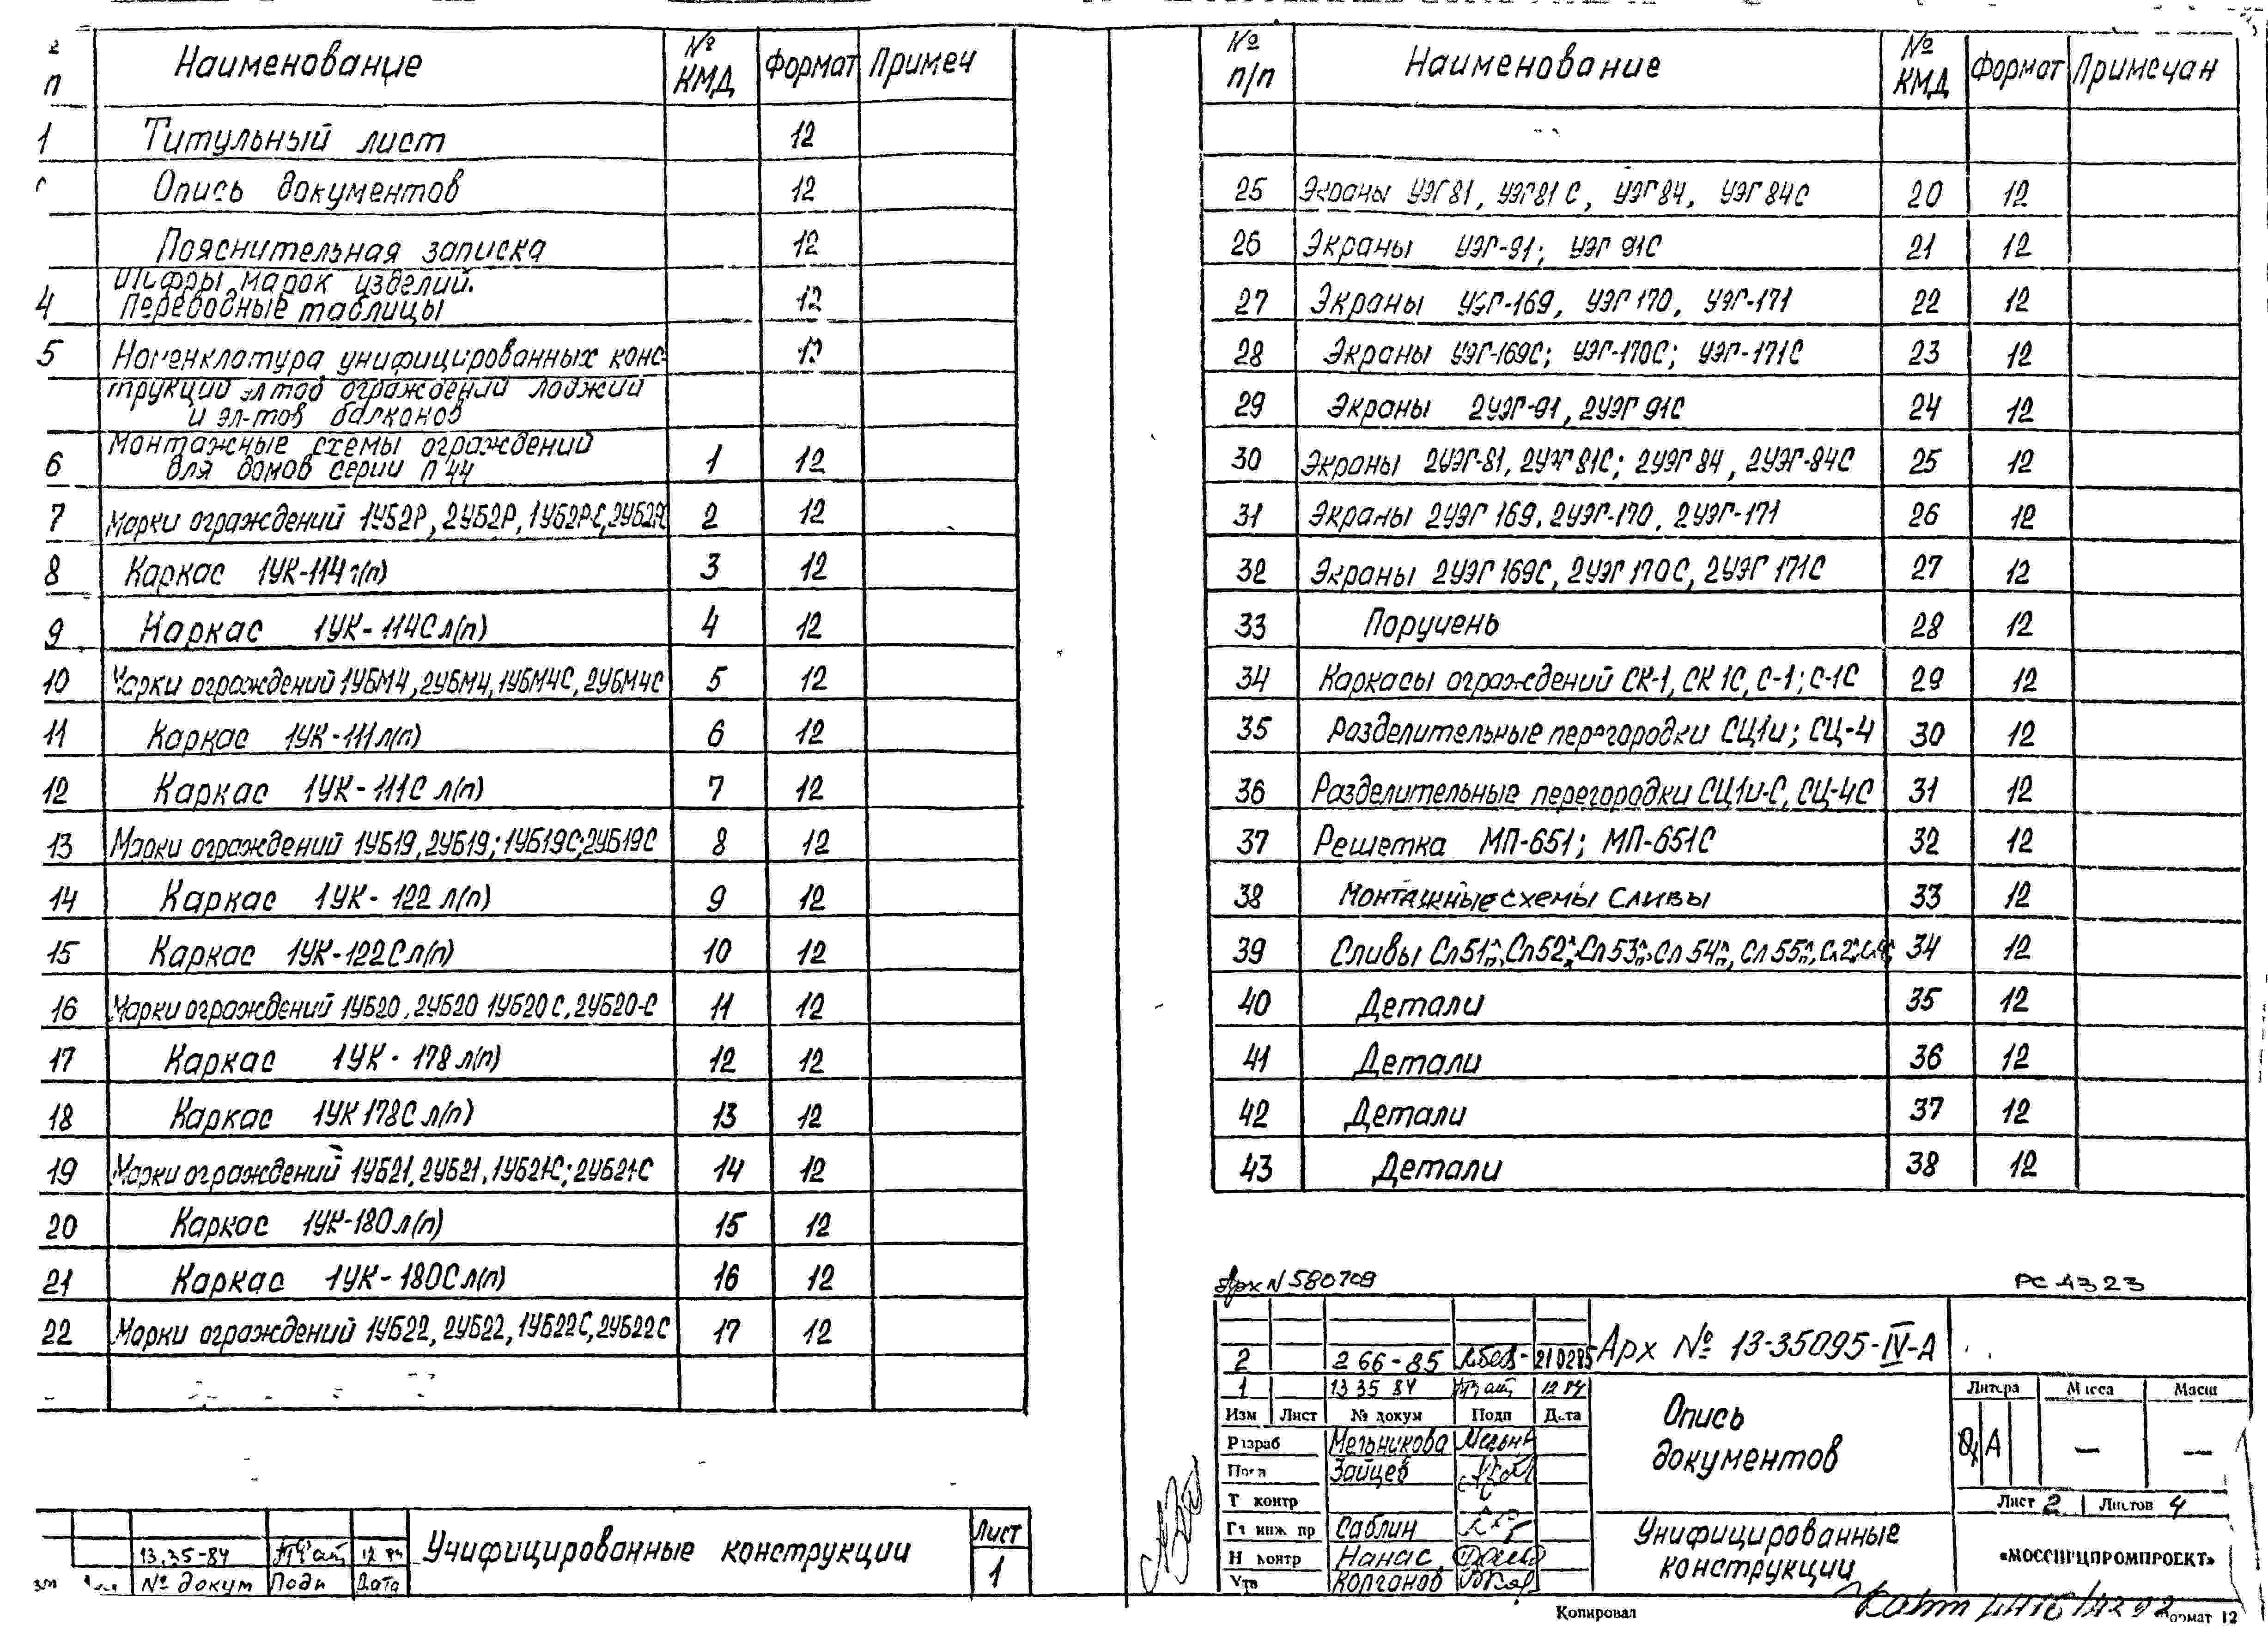 п Наименование № КМД Формат Примеч
1 Титульный лист 12
Опись документов 12
Пояснительная записка 12
Шифры марок изделий.
4 Переводные таблицы 12
5 Номенклатура унифицированных конс- 12
трукций эл-тов ограждений лоджий
и эл-тов балконов
Монтажные схемы ограждений
6 для домов серии П 44 1 12
7 Марки ограждений 1УБ2Р, 2УБ2Р, 1УБ2Р-С, 2УБ2РС 2 12
8 Каркас 1УК-114 л(п) 3 12
9 Каркас 1УК-114С л(п) 4 12
10 Марки ограждений 1УБМ4, 2УБМ4, 1УБМ4С, 2УБМ4С 5 12
11 Каркас 1УК-111 л(п) 6 12
12 Каркас 1УК-111С л(п) 7 12
13 Марки ограждений 1УБ19, 2УБ19; 1УБ19С; 2УБ19С 8 12
14 Каркас 1УК-122 л(п) 9 12
15 Каркас 1УК-122С л(п) 10 12
16 Марки ограждений 1УБ20, 2УБ20 1УБ20С, 2УБ20-С 11 12
17 Каркас 1УК-178 л(п) 12 12
18 Каркас 1УК 178С л(п) 13 12
19 Марки ограждений 1УБ21, 2УБ21, 1УБ21-С; 2УБ21-С 14 12
20 Каркас 1УК-180 л(п) 15 12
21 Каркас 1УК-180С л(п) 16 12
22 Марки ограждений 1УБ22, 2УБ22, 1УБ22С, 2УБ22С 17 12
13.35-84 12 84
№ докум Подп Дата
Унифицированные конструкции
Лист
1
№ п/п Наименование № КМД Формат Примечан
25 Экраны УЭГ81, УЭГ81С, УЭГ84, УЭГ84С 20 12
26 Экраны УЭГ-91; УЭГ 91С 21 12
27 Экраны УЭГ-169, УЭГ 170, УЭГ-171 22 12
28 Экраны УЭГ-169С; УЭГ-170С; УЭГ-171С 23 12
29 Экраны 2УЭГ-91, 2УЭГ 91С 24 12
30 Экраны 2УЭГ-81, 2УЭГ 81С; 2УЭГ 84, 2УЭГ-84С 25 12
31 Экраны 2УЭГ 169, 2УЭГ-170, 2УЭГ-171 26 12
32 Экраны 2УЭГ 169С, 2УЭГ 170С, 2УЭГ 171С 27 12
33 Поручень 28 12
34 Каркасы ограждений СК-1, СК 1С, С-1; С-1С 29 12
35 Разделительные перегородки СЦ1и; СЦ-4 30 12
36 Разделительные перегородки СЦ1и-С, СЦ-4С 31 12
37 Решетка МП-651; МП-651С 32 12
38 Монтажные схемы Сливы 33 12
39 Сливы Сл51, Сл52, Сл53, Сл54, Сл55, Сл2, 34 12
40 Детали 35 12
41 Детали 36 12
42 Детали 37 12
43 Детали 38 12
Арх N 580709 РС 4323
2 266-85 210285
Арх № 13-35095-IV-А
1 13 35 84 12 84
Изм Лист № докум Подп Дата
Разраб Мельникова
Пров Зайцев
Т контр
Гл инж пр Саблин
Н контр Нанас
Утв Колганов
Опись
документов
Унифицированные
конструкции
Литера Масса Масш
А — —
Лист 2 Листов 4
«МОССПЕЦПРОМПРОЕКТ»
Копировал Формат 12